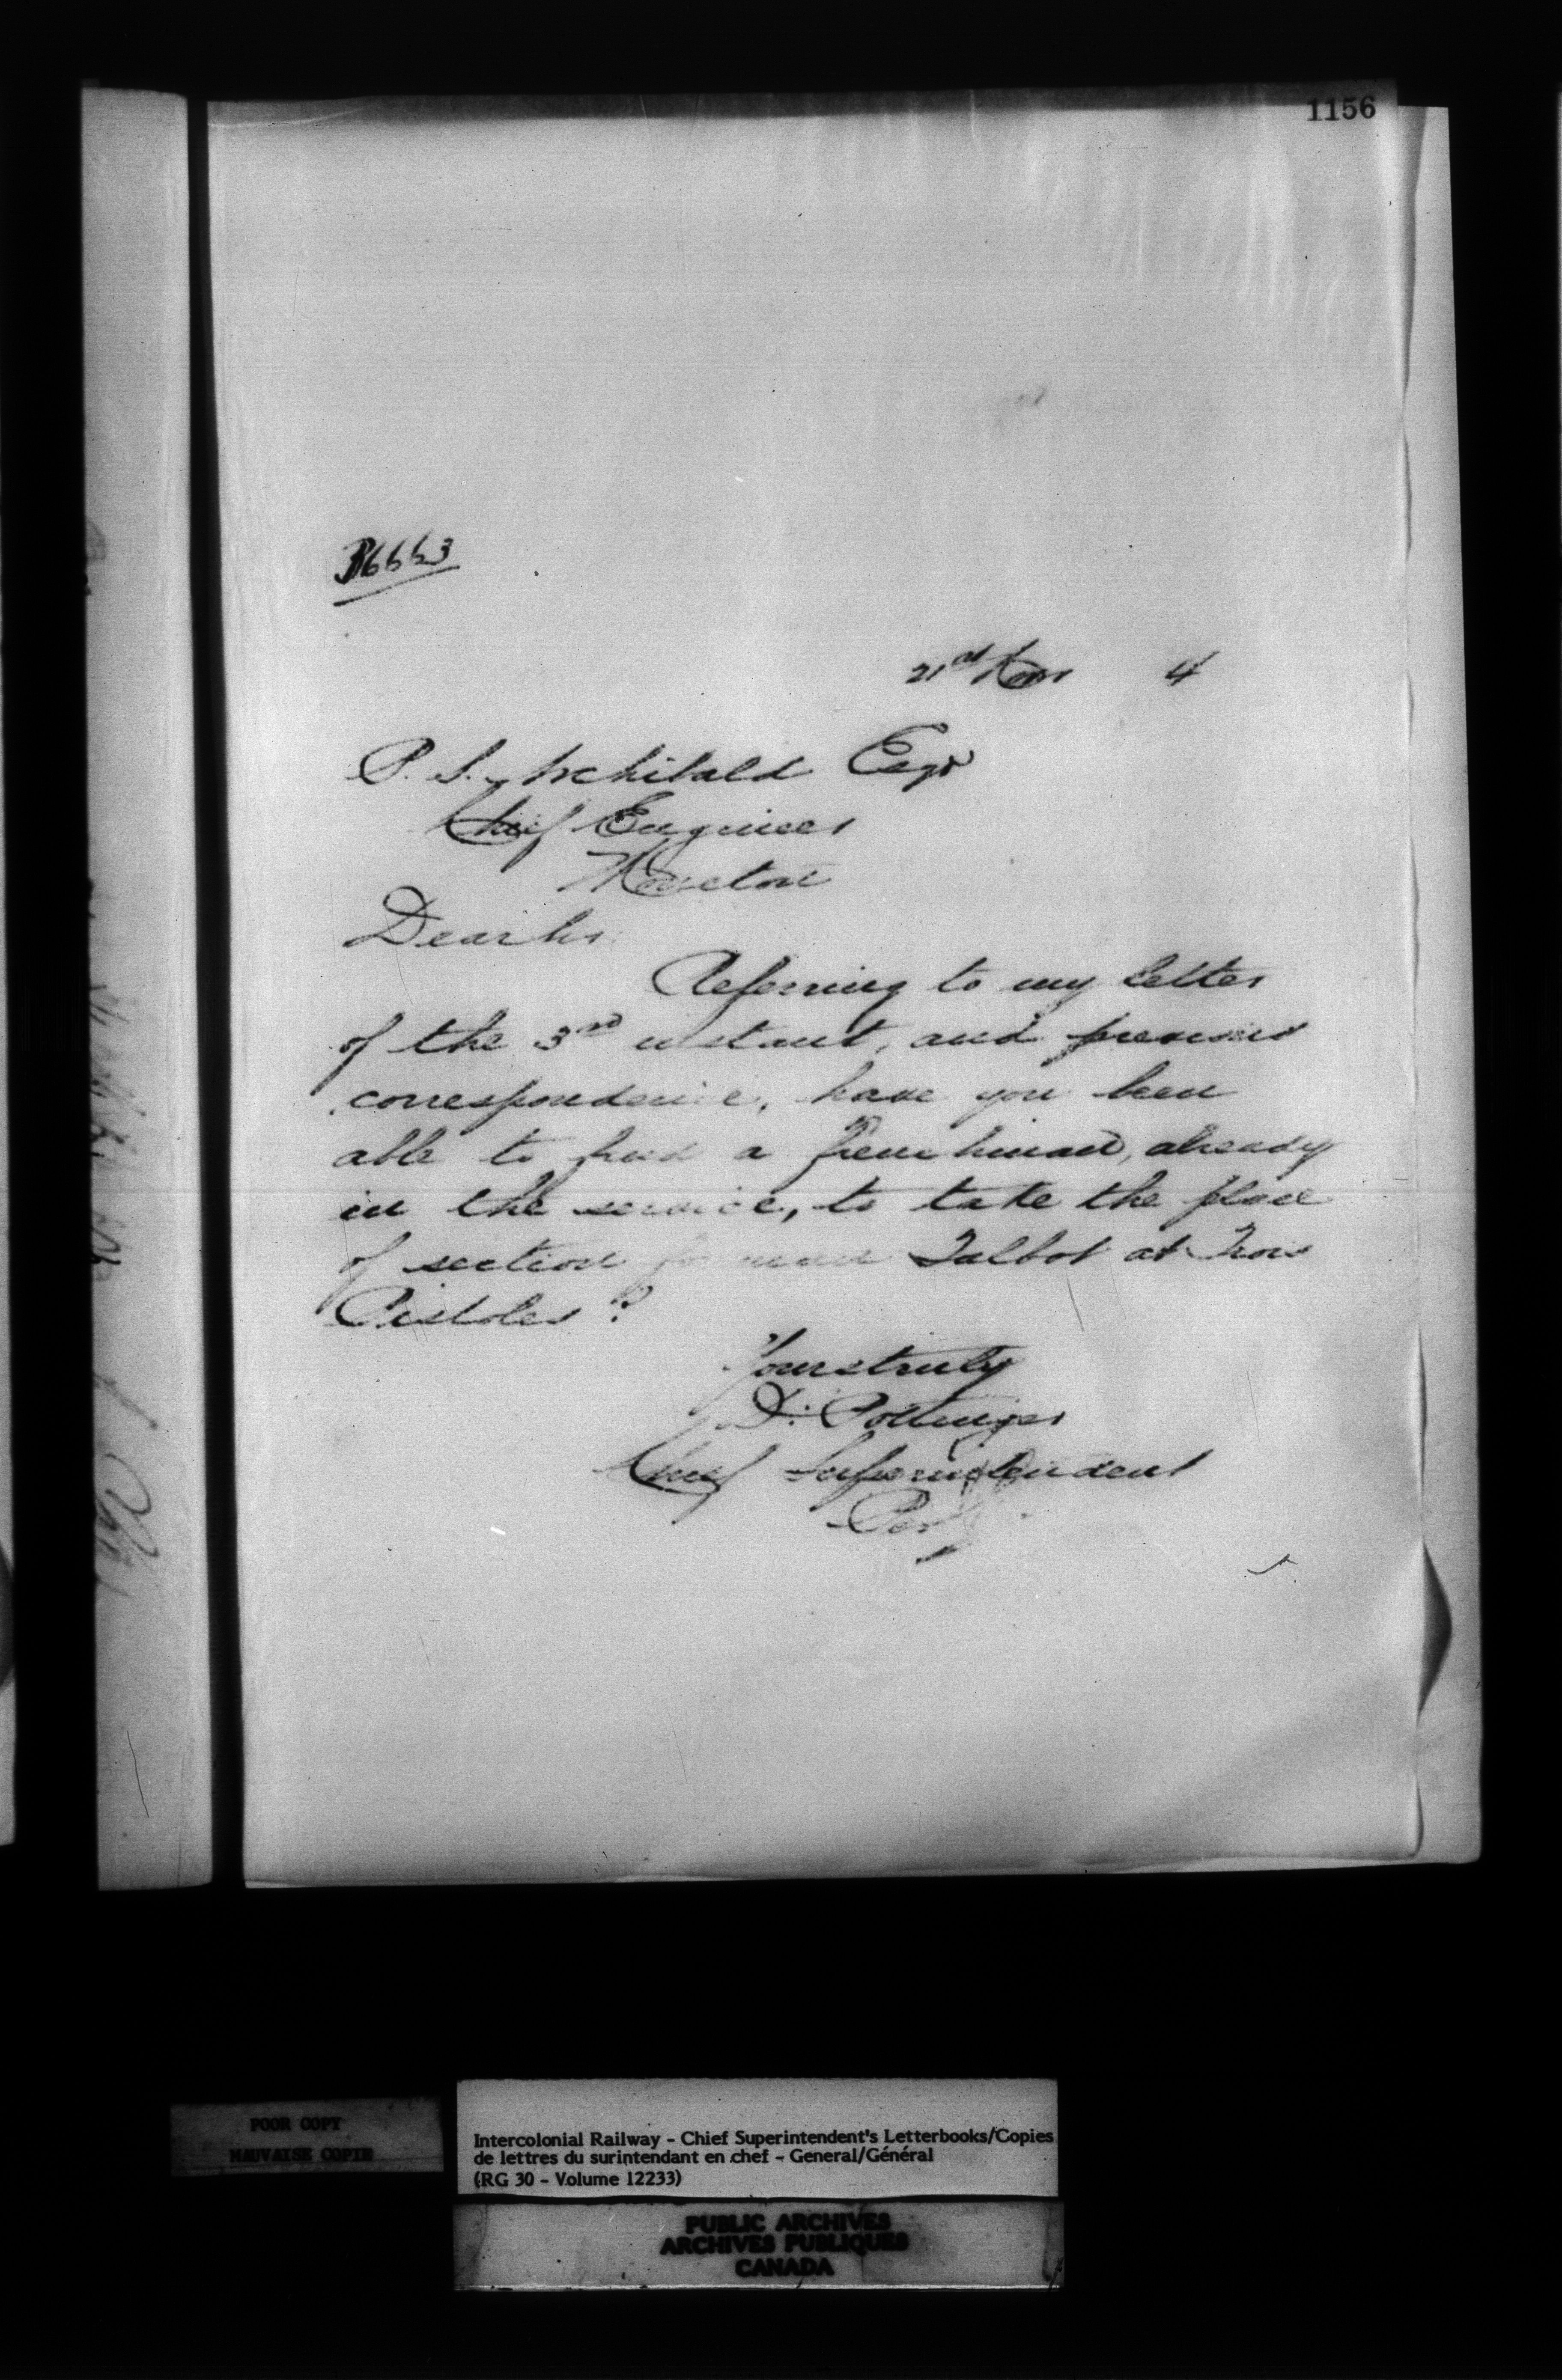 1156
36663
21st Nov 4
P. S. Archibald Esqr
Chief Engineer
Moncton
Dear Sir
Referring to my letter
of the 3rd instant, and previous
correspondence, have you been
able to find a Frenchman, already
in the service, to take the place
of section foreman Talbot at Trois
Pistoles?
Yours truly
D. Pottinger
Chief Superintendent
Per
POOR COPY
MAUVAISE COPIE
Intercolonial Railway - Chief Superintendent's Letterbooks/Copies
de lettres du surintendant en chef - General/Général
(RG 30 - Volume 12233)
PUBLIC ARCHIVES
ARCHIVES PUBLIQUES
CANADA